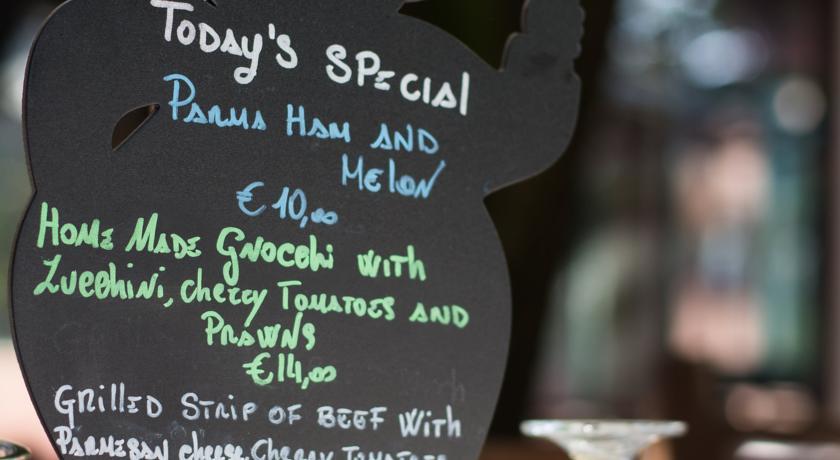 Today's Special
Parma Ham and
Melon
€10,00
Home Made Gnocchi with
Zucchini, cherry Tomatoes and
Prawns
€14,00
Grilled Strip of Beef with
Parmesan cheese, Cherry Tomatoes